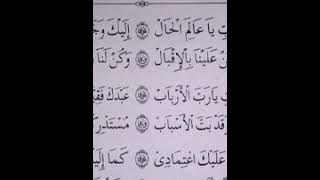 يَا عَالِمَ الْحَالْ ۞ إِلَيْكَ
عَلَيْنَا بِالْإِقْبَالْ ۞ وَكُنْ لَنَا
يَارَبَّ الْأَرْبَابْ ۞ عَبْدُكَ
قَدْ بَتَّ الْأَسْبَابْ ۞
عَلَيْكَ اعْتِمَادِيْ ۞ كَمَا